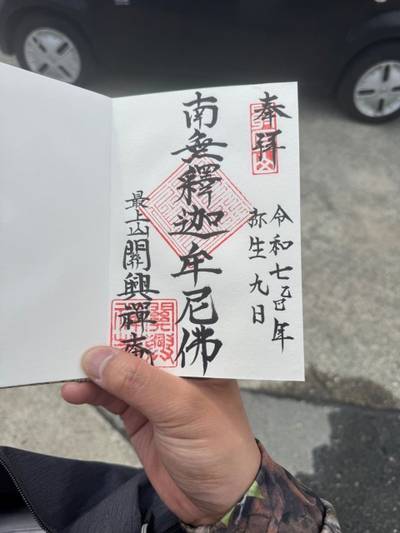 奉拝
令和七乙巳年
弥生九日
南無釋迦牟尼佛
最上山
關興禪庵